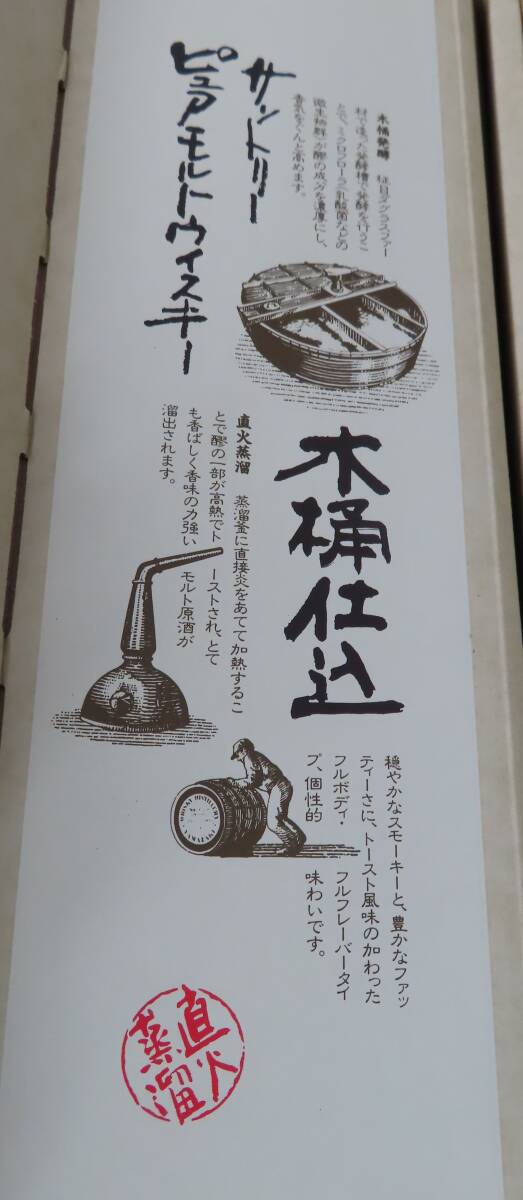 サントリー
ピュアモルトウイスキー
木桶発酵 柾目ダグラスファー
材で造った発酵槽で発酵を行うこ
とで、ミクロフローラ(乳酸菌などの
微生物群)が醪の成分を濃厚にし、
香気をぐんと高めます。
木桶仕込
直火蒸溜 蒸溜釜に直接炎をあてて加熱するこ
とで醪の一部が高熱でトーストされ、とて
も香ばしく香味の力強いモルト原酒が
溜出されます。
穏やかなスモーキーと、豊かなファッ
ティーさに、トースト風味の加わった
フルボディ・フルフレーバータイ
プ、個性的味わいです。
WHISKY DISTILLERY
直火
蒸溜